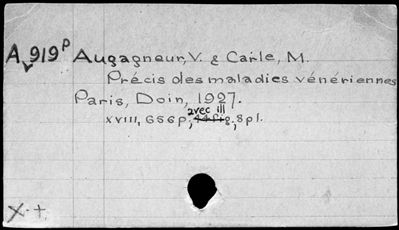 A.919ᵖ Augagneur, V. & Carle, M.
Précis des maladies vénériennes
Paris, Doin, 1927.
avec ill
XVIII, 686p; g, 8pl.
X·+